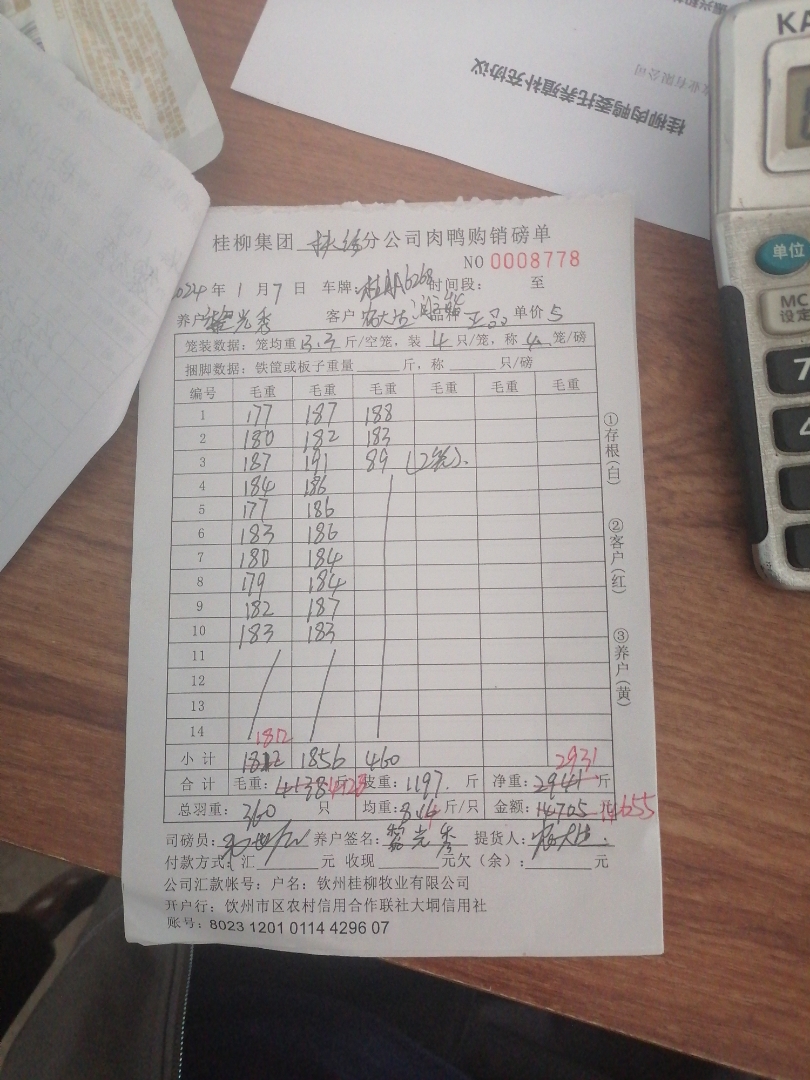 桂柳肉鸭委托养殖补充协议
业有限公司
KA
单位
MC
设定
7
4
桂柳集团 分公司肉鸭购销磅单
NO 0008778
2024 年 1 月 7 日 车牌: 6268 时间段: 至
养户 光秀 客户 品种 单价 5
笼装数据: 笼均重 13.3 斤/空笼, 装 4 只/笼, 称 4 笼/磅
捆脚数据: 铁筐或板子重量 斤, 称 只/磅
编号 毛重 毛重 毛重 毛重 毛重 毛重
1 177 187 188
2 180 182 183
3 187 191 89 (2笼).
4 184 186
5 177 186
6 183 186
7 180 184
8 179 184
9 182 187
10 183 183
11
12
13
14
1812
小计 1822 1856 460 2931
合计 毛重: 4138 斤 4128 皮重: 1197. 斤 净重: 2941 斤
总羽重: 360 只 均重: 8.14 斤/只 金额: 14705 14655
司磅员: 养户签名: 光秀 提货人:
付款方式: 汇 元 收现 元欠(余): 元
公司汇款帐号: 户名: 钦州桂柳牧业有限公司
开户行: 钦州市区农村信用合作联社大垌信用社
账号: 8023 1201 0114 4296 07
①存根(白)
②客户(红)
③养户(黄)